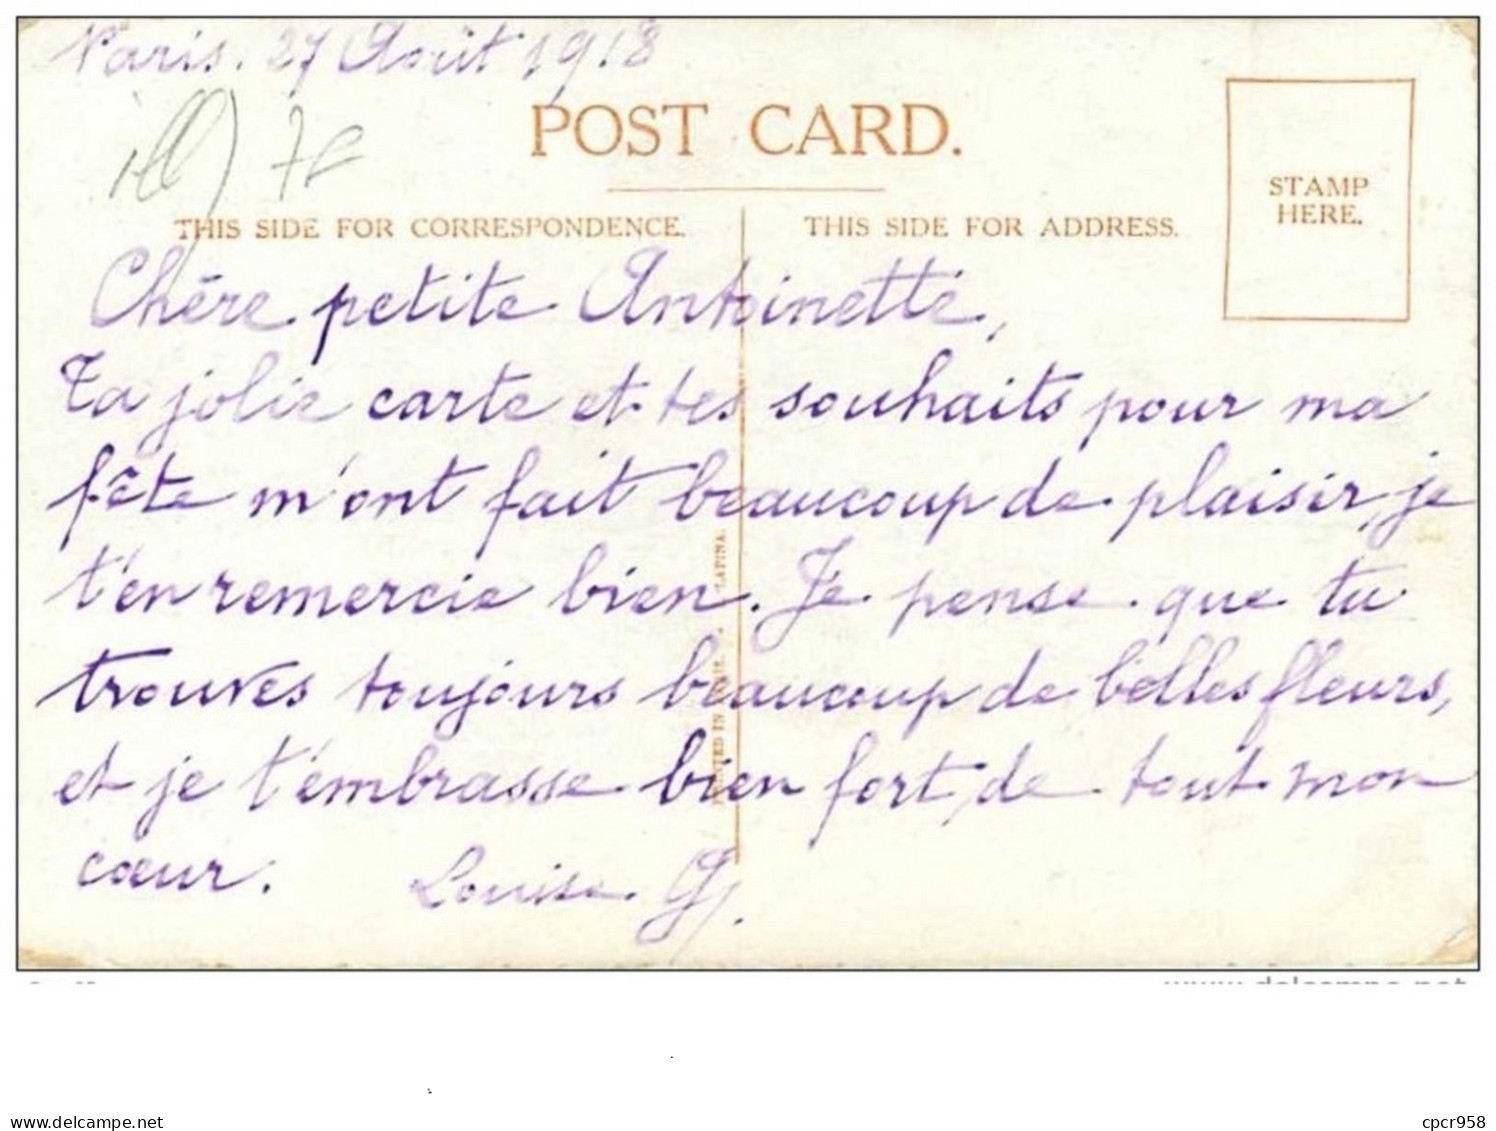 Paris. 27 Août 1918
POST CARD.
STAMP
HERE.
THIS SIDE FOR CORRESPONDENCE.
THIS SIDE FOR ADDRESS.
Chère petite Antoinette,
Ta jolie carte et tes souhaits pour ma
fête m'ont fait beaucoup de plaisir, je
t'en remercie bien. Je pense que tu
trouves toujours beaucoup de belles fleurs,
et je t'embrasse bien fort, de tout mon
cœur. Louise G.
PRINTED IN PARIS. LAPINA.
www.delcampe.net
cpcr958